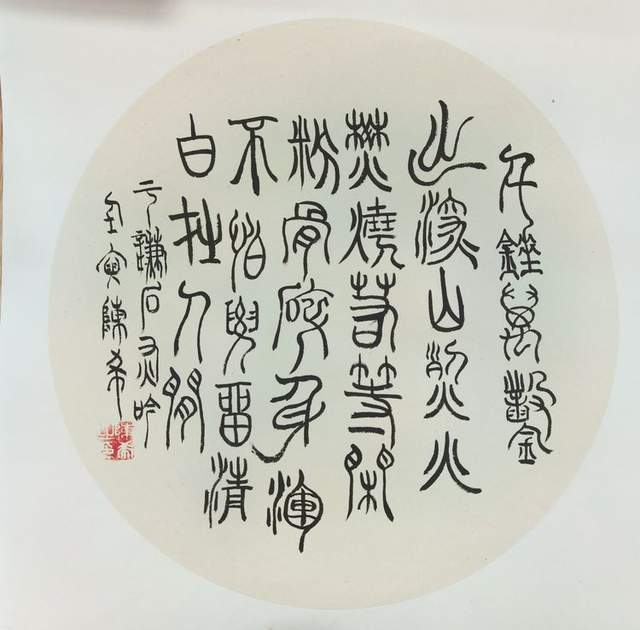 千錘萬鑿
出深山烈火
焚燒若等閑
粉骨碎身渾
不怕要留清
白在人閒
于謙石灰吟
壬寅陳希